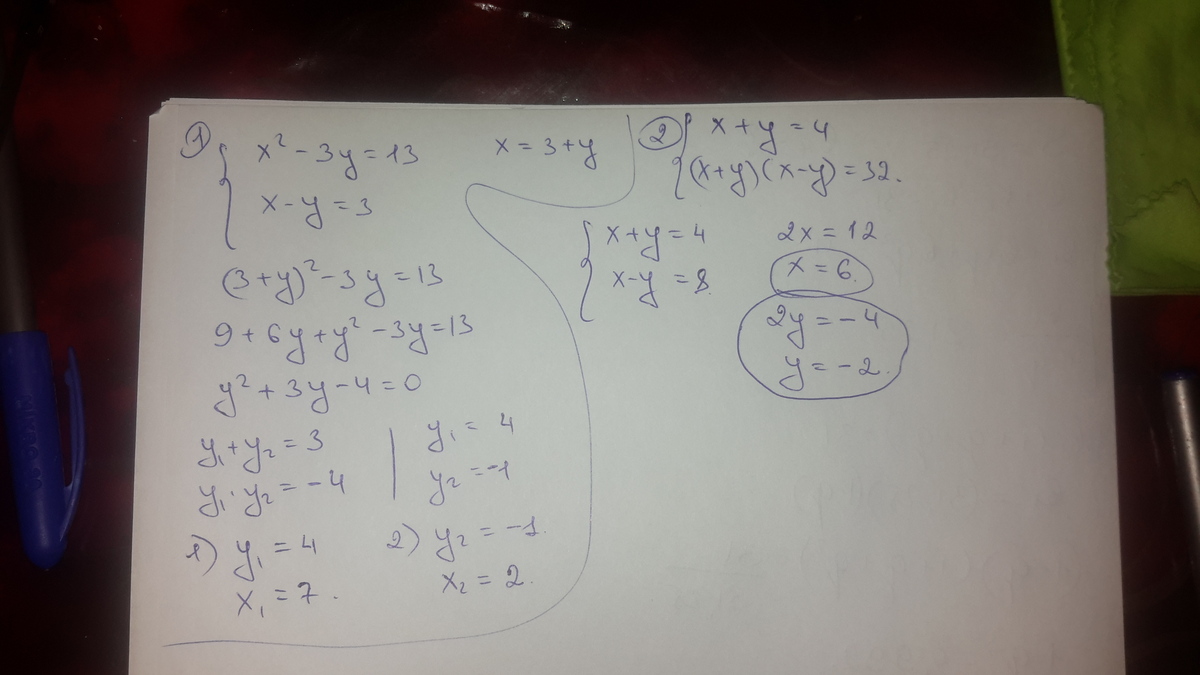 ① x² - 3y = 13
x = 3 + y
x - y = 3
(3 + y)² - 3y = 13
9 + 6y + y² - 3y = 13
y² + 3y - 4 = 0
y₁ + y₂ = 3
y₁ · y₂ = -4
y₁ = 4
y₂ = -1
1) y₁ = 4
x₁ = 7.
2) y₂ = -1.
x₂ = 2.
② x + y = 4
(x+y)(x-y) = 32.
x + y = 4
x - y = 8.
2x = 12
x = 6.
2y = -4
y = -2.